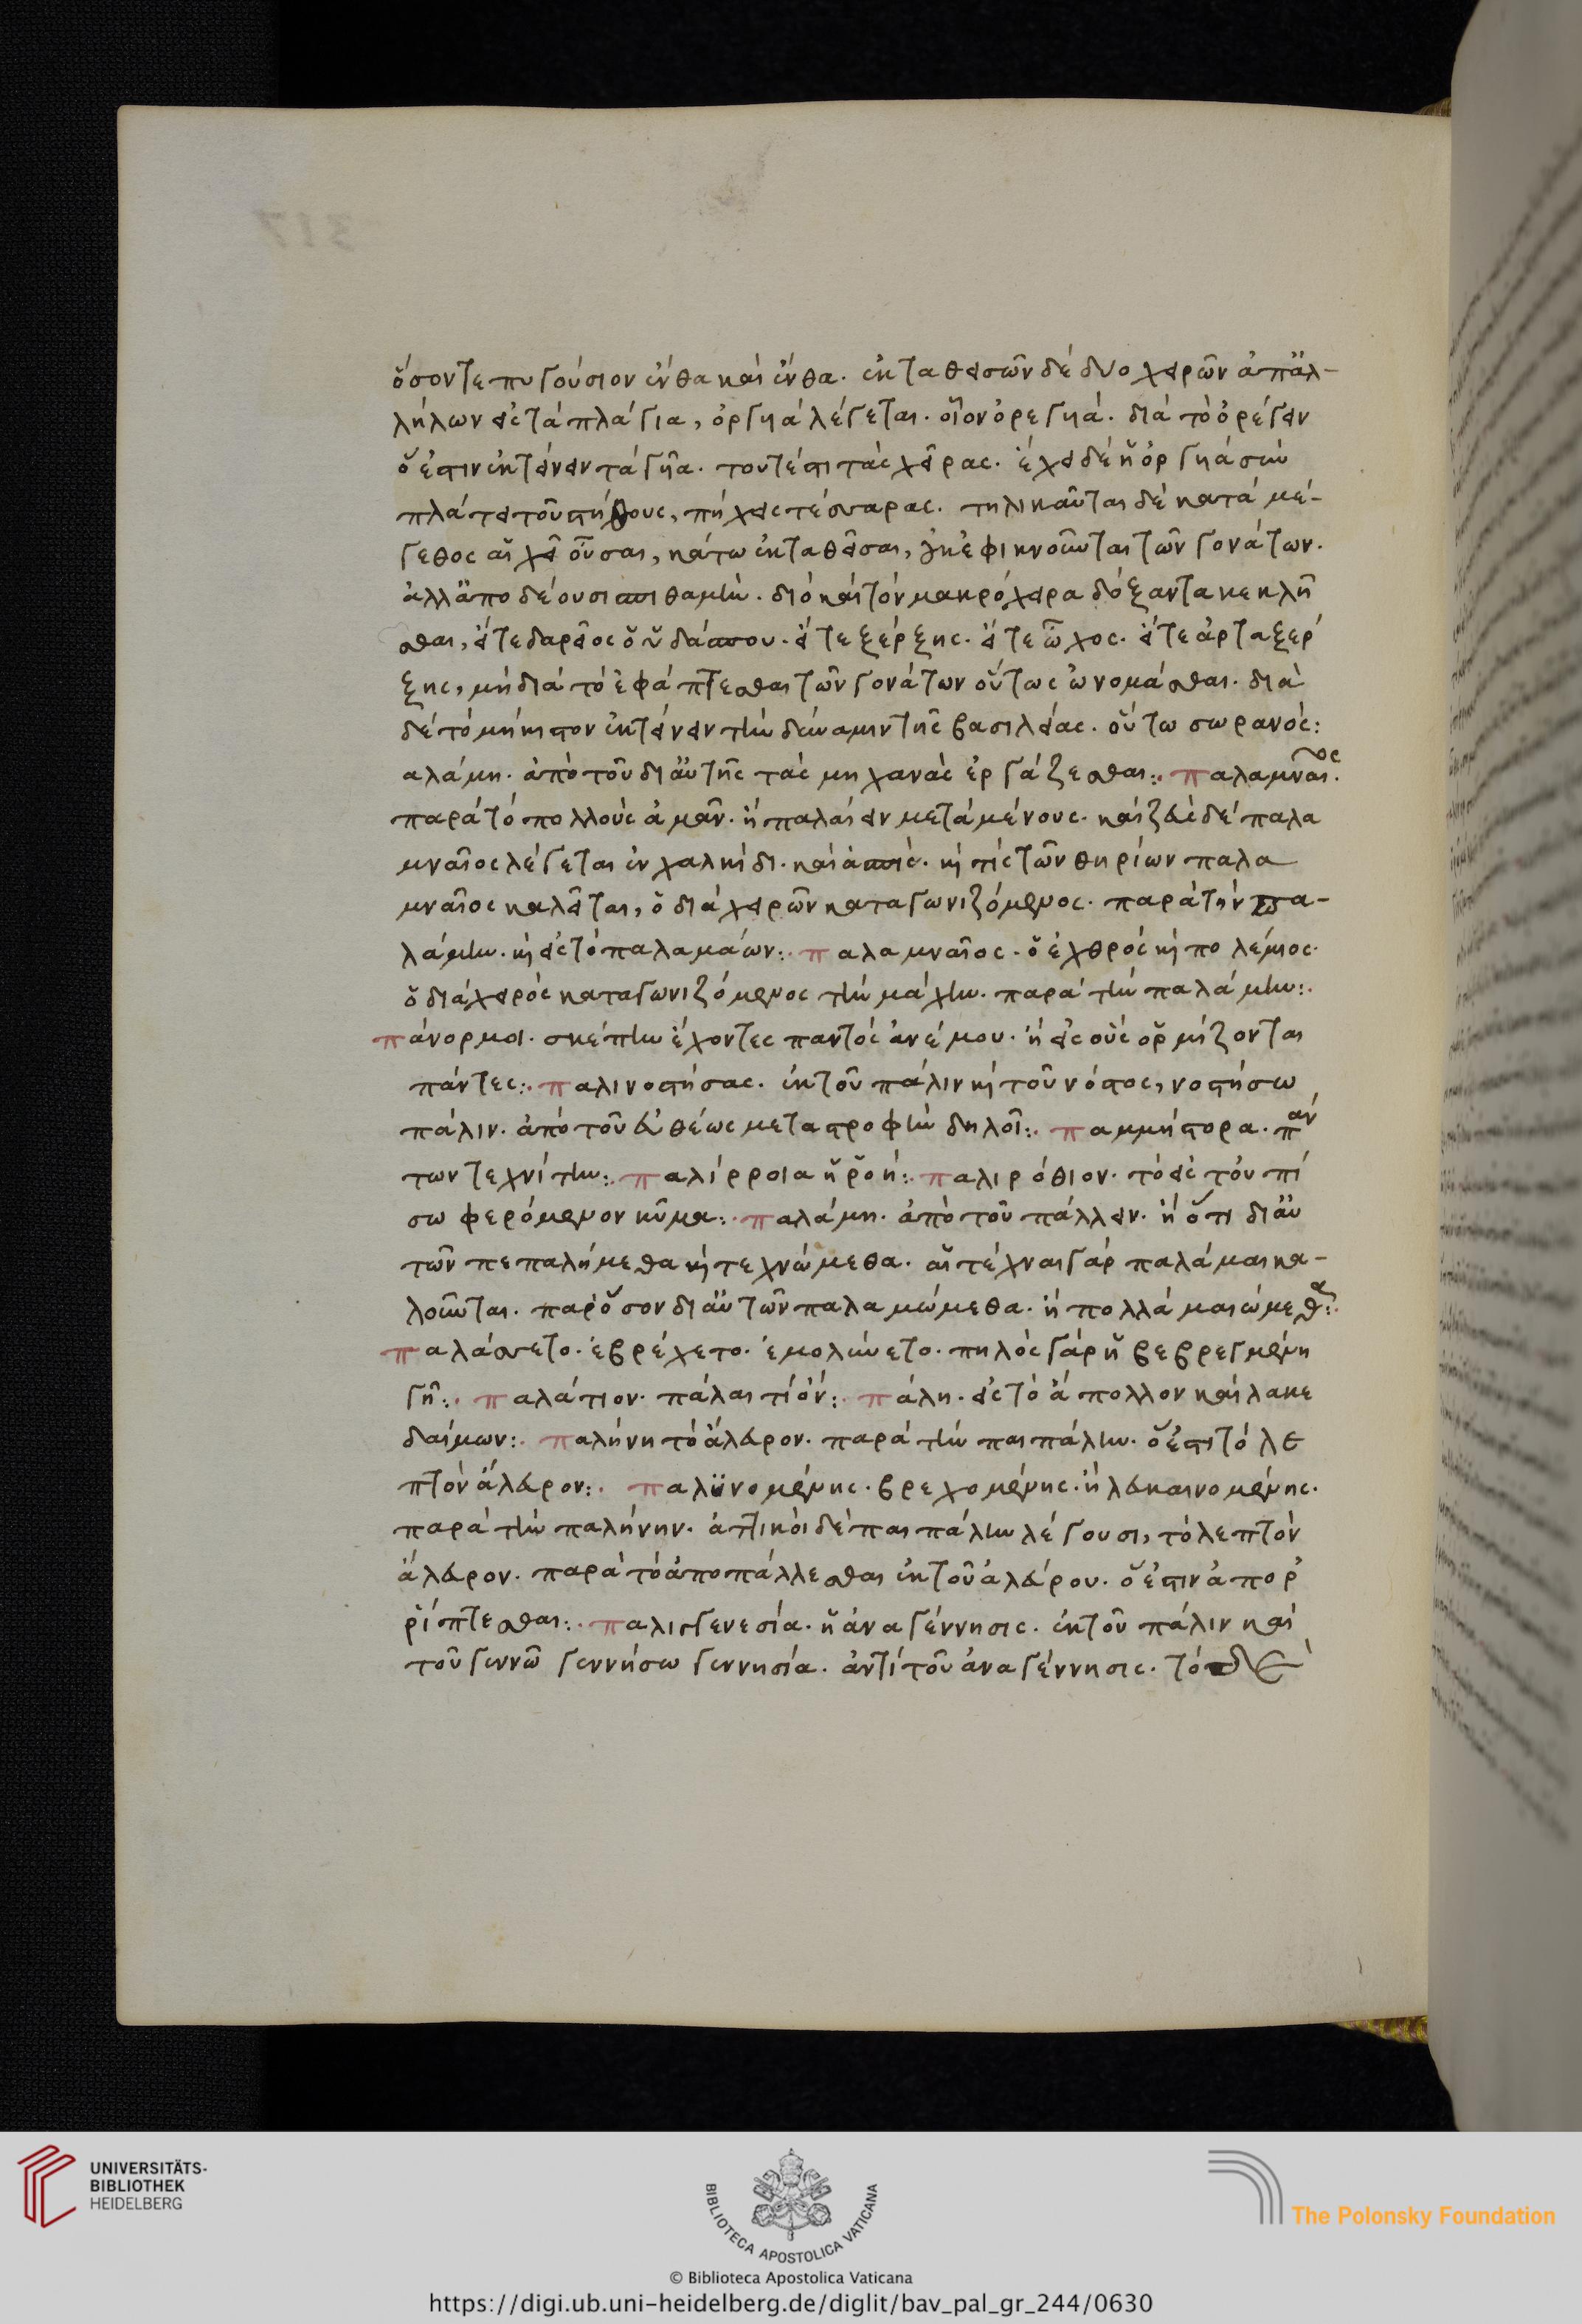 ὅσοντε πυγούσιον ἔνθα καὶ ἔνθα. ἐκταθεισῶν δὲ δύο χειρῶν ἀπ' ἀλ-
λήλων εἰς τὰ πλάγια, ὀργυιὰ λέγεται. οἷον ὀρεγυιά. διὰ τὸ ὀρέγειν
ὅ ἐστιν ἐκτείνειν τὰ γυῖα. τουτέστι τὰς χεῖρας. ἔχει δὲ ἡ ὀργυιὰ σὺν
πλάτει τοῦ στήθους, πήχεις τέσσαρας. τηλικαῦται δὲ κατὰ μέ-
γεθος αἱ χεῖ οὖσαι, κάτω ἐκταθεῖσαι, οὐκ ἐφικνοῦνται τῶν γονάτων.
ἀλλ' ἀποδέουσι σπιθαμήν. διὸ καὶ τὸν μακρόχειρα δόξαντα κεκλῆ
σθαι, εἴτε δαρεῖος ὁ ὑδάσπου. εἴτε ξέρξης. εἴτε ὦχος. εἴτε ἀρταξέρ
ξης, μὴ διὰ τὸ ἐφάπτεσθαι τῶν γονάτων οὕτως ὠνομάσθαι. διὰ
δὲ τὸ μήκιστον ἐκτείνειν τὴν δύναμιν τῆς βασιλείας. οὕτω σωρανός:
αλάμη. ἀπὸ τοῦ δι' αὐτῆς τὰς μηχανὰς ἐργάζεσθαι:. παλαμναῖος.
παρὰ τὸ πολλοὺς ἀμᾶν. ἢ παλαίειν μετὰ μένους. καὶ ζεὺς δὲ παλα
μναῖος λέγεται ἐν χαλκίδι. καὶ ἀσπίς. καί τις τῶν θηρίων παλα
μναῖος καλεῖται, ὁ διὰ χειρῶν καταγωνιζόμενος. παρὰ τὴν πα-
λάμην. καὶ εἰς τὸ παλαμάων:. παλαμναῖος. ὁ ἐχθρὸς καὶ πολέμιος.
ὁ διὰ χειρὸς καταγωνιζόμενος τὴν μάχην. παρὰ τὴν παλάμην:.
πάνορμοι. σκέπην ἔχοντες παντὸς ἀνέμου. ἢ εἰς οὓς ὁρμίζονται
πάντες:. παλινοστήσας. ἐκ τοῦ πάλιν καὶ τοῦ νόστος, νοστήσω
πάλιν. ἀπὸ τοῦ εὐθέως μεταστροφὴν δηλοῖ:. παμμήστορα. πάν
των τεχνίτην:. παλίρροια ἡ ῥοή:. παλιρόθιον. τὸ εἰς τὸν πί
σω φερόμενον κῦμα:. παλάμη. ἀπὸ τοῦ πάλλειν. ἢ ὅτι δι' αὐ
τῶν πεπαλήμεθα καὶ τεχνώμεθα. αἱ τέχναι γὰρ παλάμαι κα-
λοῦνται. παρ' ὅσον δι' αὐτῶν παλαμώμεθα. ἢ πολλὰ μαιώμεθα:.
παλάσσετο. ἐβρέχετο. ἐμολύνετο. πηλὸς γὰρ ἡ βεβρεγμένη
γῆ:. παλάτιον. πάλαι τιόν:. πάλη. εἰς τὸ ἀπολλον καὶ λακε
δαίμων:. παλήνη τὸ ἄλευρον. παρὰ τὴν παιπάλην. ὅ ἐστι τὸ λε
πτὸν ἄλευρον:. παλϋνομένης. βρεχομένης. ἢ λευκαινομένης.
παρὰ τὴν παλήνην. ἀττικοὶ δὲ παιπάλην λέγουσι, τὸ λεπτὸν
ἄλευρον. παρὰ τὸ ἀποπάλλεσθαι ἐκ τοῦ ἀλεύρου. ὅ ἐστιν ἀπορ
ρίπτεσθαι:. παλιγγενεσία. ἡ ἀναγέννησις. ἐκ τοῦ πάλιν καὶ
τοῦ γεννῶ γεννήσω γεννησία. ἀντὶ τοῦ ἀναγέννησις. τὸ
UNIVERSITÄTS-
BIBLIOTHEK
HEIDELBERG
BIBLIOTECA APOSTOLICA VATICANA
The Polonsky Foundation
© Biblioteca Apostolica Vaticana
https://digi.ub.uni-heidelberg.de/diglit/bav_pal_gr_244/0630